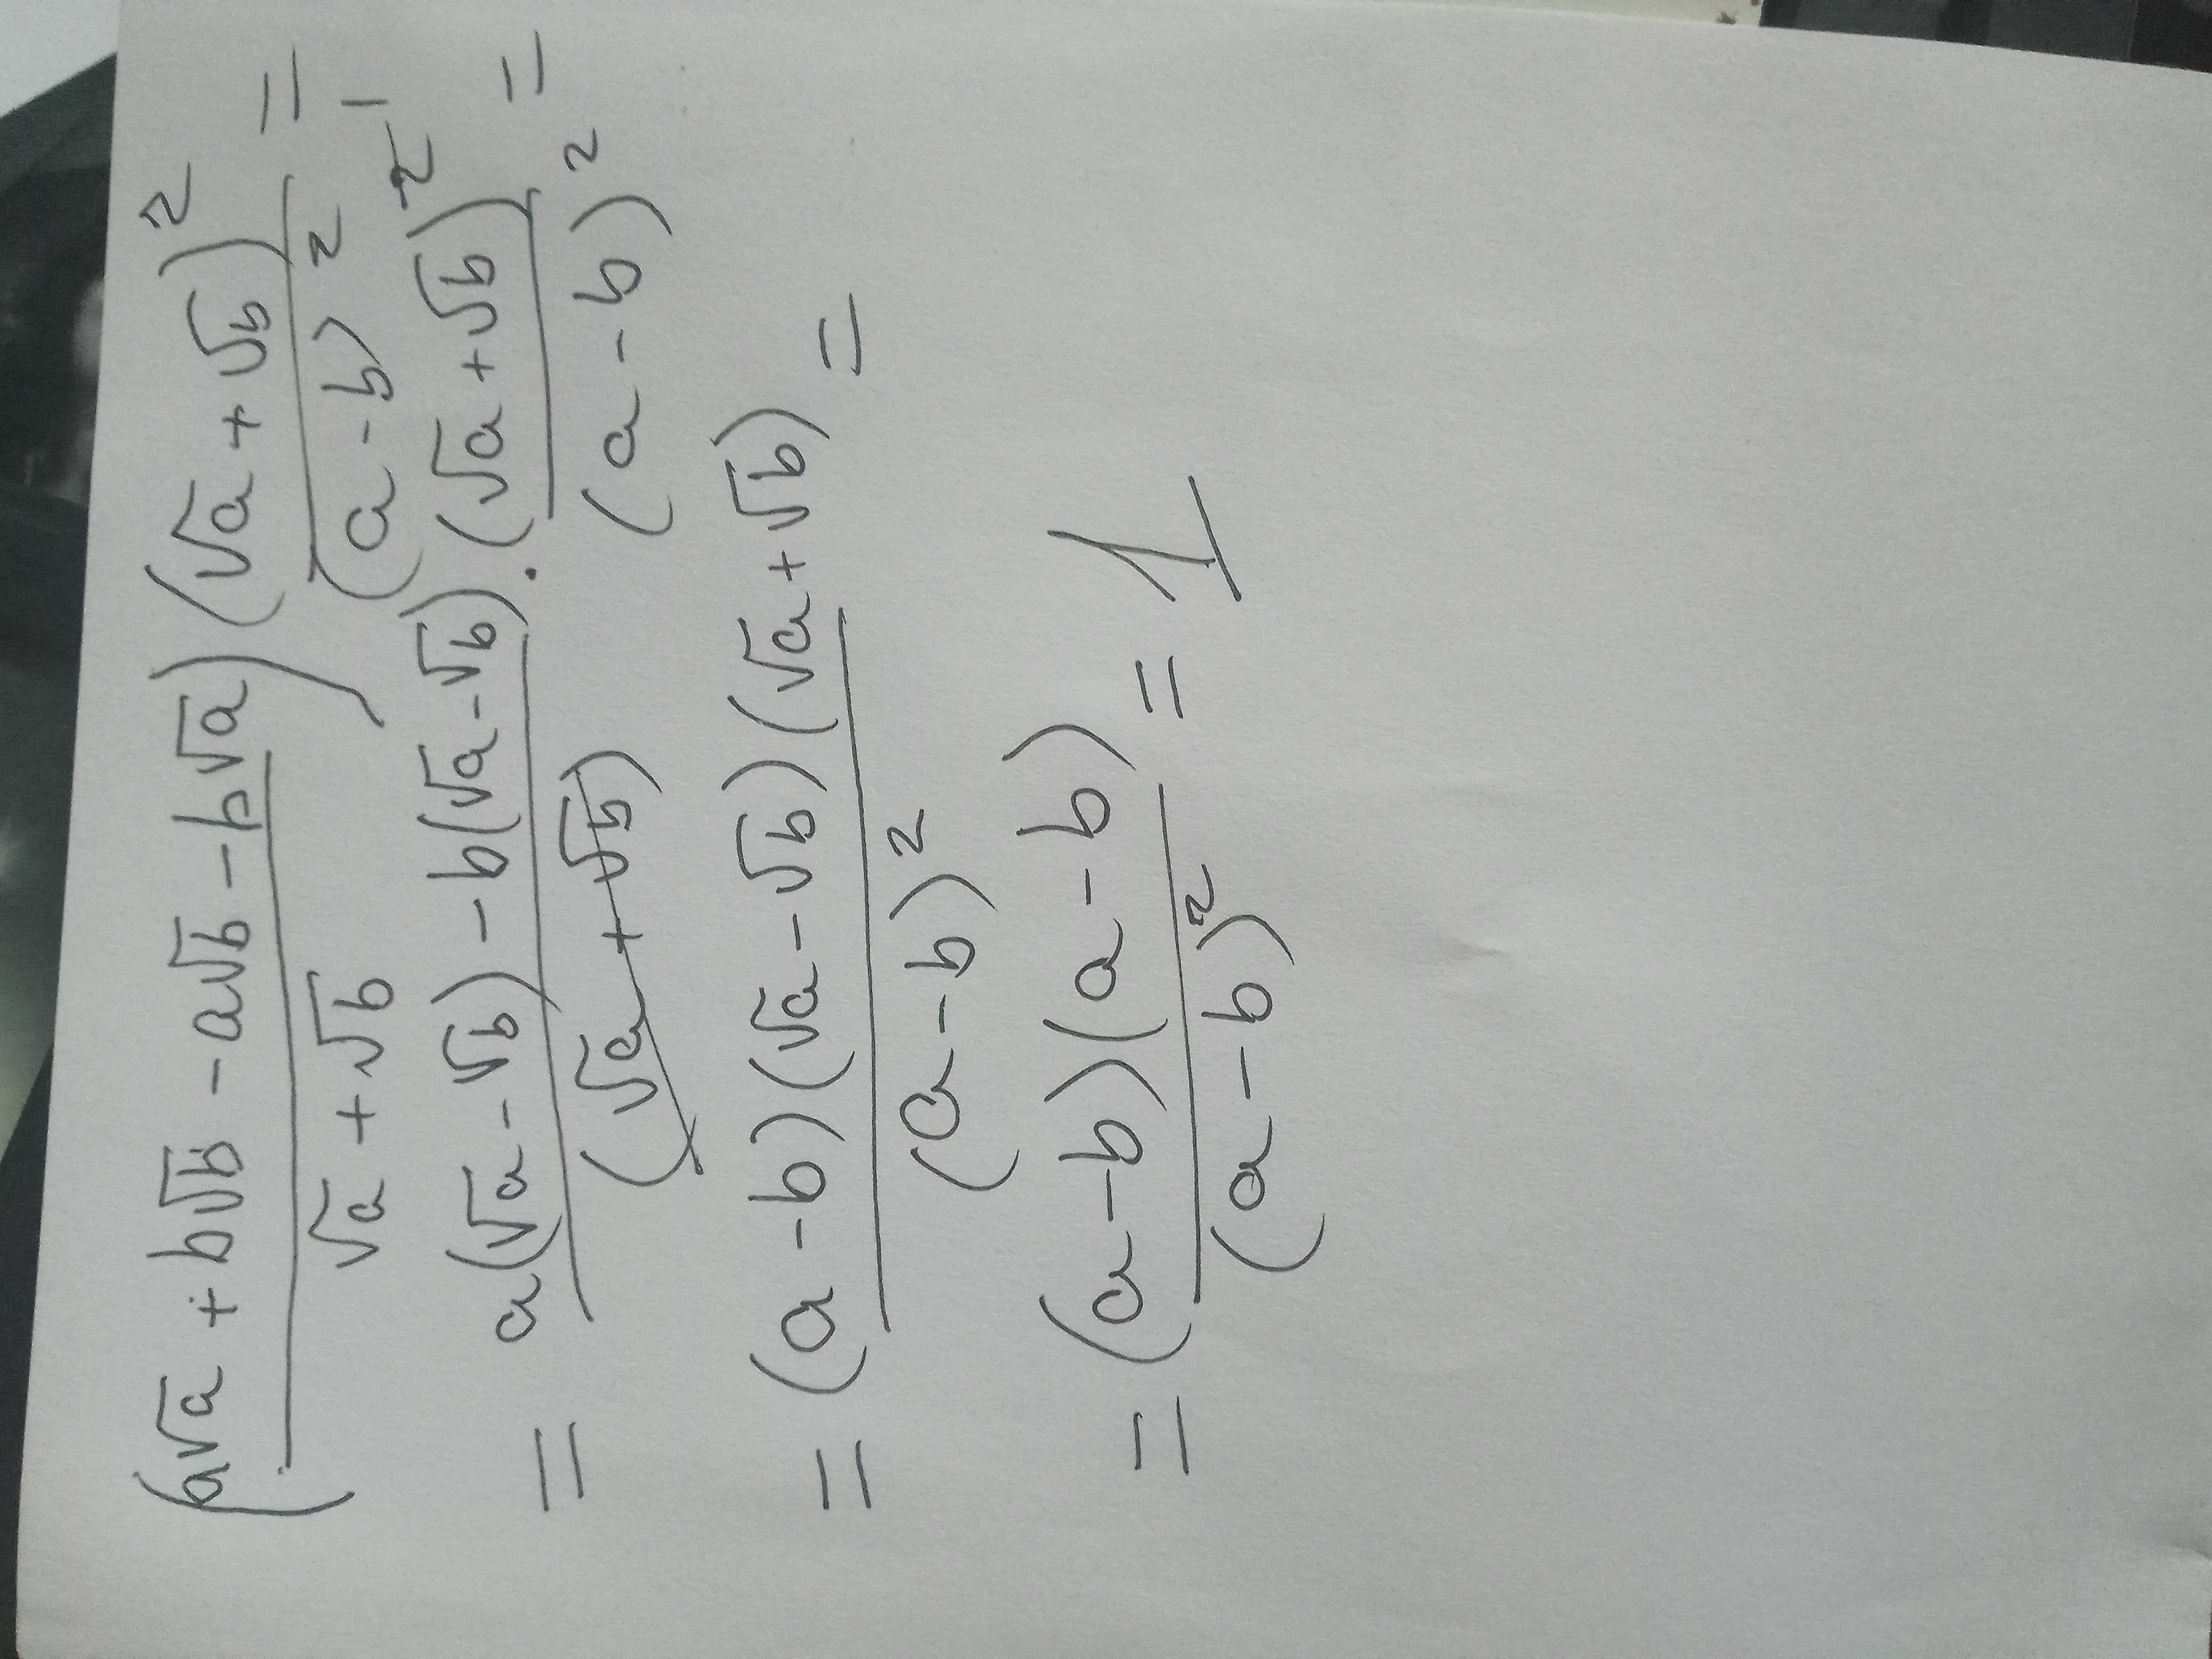 (a√a + b√b - a√b - b√a) (√a + √b)² =
√a + √b (a - b)²
= a(√a - √b) - b(√a - √b) · (√a + √b)² 1 =
(√a + √b) (a - b)²
= (a - b)(√a - √b)(√a + √b) =
(a - b)²
= (a - b)(a - b) = 1
(a - b)²